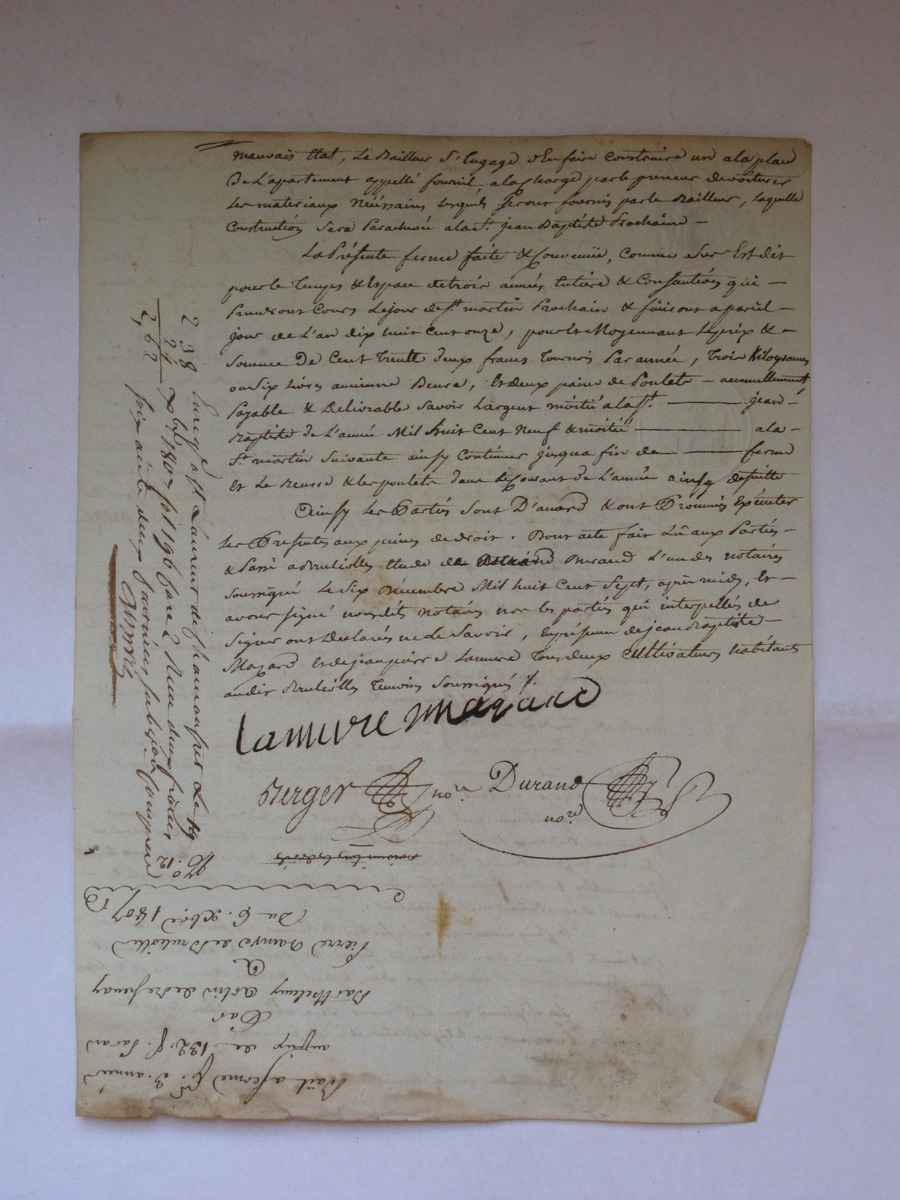 mauvais Etat, Le Bailleur S'Engage d'En faire Construire un a la place
De L'apartement appellé fournil a la charge par le preneur de voiturer
Les materiaux Nécéssaires lesquels seront fournis par le Bailleur, laquelle
Construction Sera Parachevée a la St. jean Baptiste Prochaine —
La Présente ferme faite & Convenüe, Comme dit Est
pour le temps & Espace de trois années Entières & Consécutives qui —
Prendront Cours Le jour de St. martin Prochain & finiront a pareil —
jour de L'an dix huit Cent onze, pour & Moyennant Le prix & —
Somme De Cent Trente deux francs Tournois Par année, Trois Kilogrammes
ou Six Livres ancienne Beurre, Et deux paires de Poulets — annuellement
Payable & Délivrable Savoir L'argent moitié a la St. — jean
Baptiste de L'année Mil huit Cent Neuf & moitié — a la —
St. martin Suivante ainsy Continuer jusqu'a fin de — ferme
Et Le Beurre & les poulets dans le Courant de L'année ainsy de suitte
Ainsy Les Parties Sont D'accord & ont Promis Exécuter
Les Présentes aux peines de droit. Dont acte fait Lû aux Parties —
& Passé a Brulioles Etude de Durand L'un des notaires
Soussigné Le Six Décembre Mil huit Cent Sept, après midi, Et —
avons signé nousdits Notaires non les parties qui interpellés de
Signer ont Déclarés ne le Savoir, En présence de jean Baptiste —
Mazard Et de jean pierre Lanuere Tous deux Cultivateurs habitants
audit Brulioles Temoins Soussignés
Lanuere mazard
Berger nore Durand
nore
Enregtré a St. Laurent de Chamousset Le
Xbre 1807 fol 196 Case 2 Reçu deux francs
2 38
24
2 62
No. 12
Bail a ferme pr. 3. années
au prix de 132. f. Par an
Par
Barthelemy
A
Pierre de Brulioles
Du 6. Xbre 1807